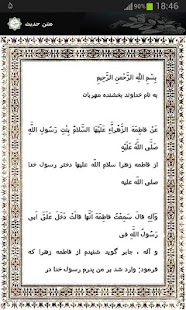 ۵ 90% 18:46
متن حدیث
بِسْمِ اللَّهِ الرَّحْمنِ الرَّحِيمِ
به نام خداوند بخشنده مهربان
عَنْ فاطِمَةَ الزَّهْراَّءِ عَلَيْهَا السَّلامُ بِنْتِ رَسُولِ اللَّهِ
از فاطمه زهرا سلام الله علیها دختر رسول خدا
صلی الله علیه
وَآلِهِ قالَ سَمِعْتُ فاطِمَةَ اَنَّها قالَتْ دَخَلَ عَلَىَّ اَبى
رَسُولُ اللَّهِ فى
و آله ، جابر گوید شنیدم از فاطمه زهرا که
فرمود: وارد شد بر من پدرم رسول خدا در